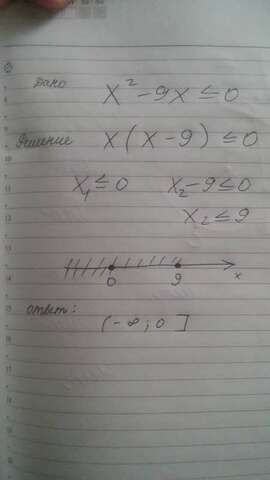 Дано x² - 9x ≤ 0
Решение x(x - 9) ≤ 0
x₁ ≤ 0 x₂ - 9 ≤ 0
x₂ ≤ 9
0 9 x
ответ:
(-∞; 0]